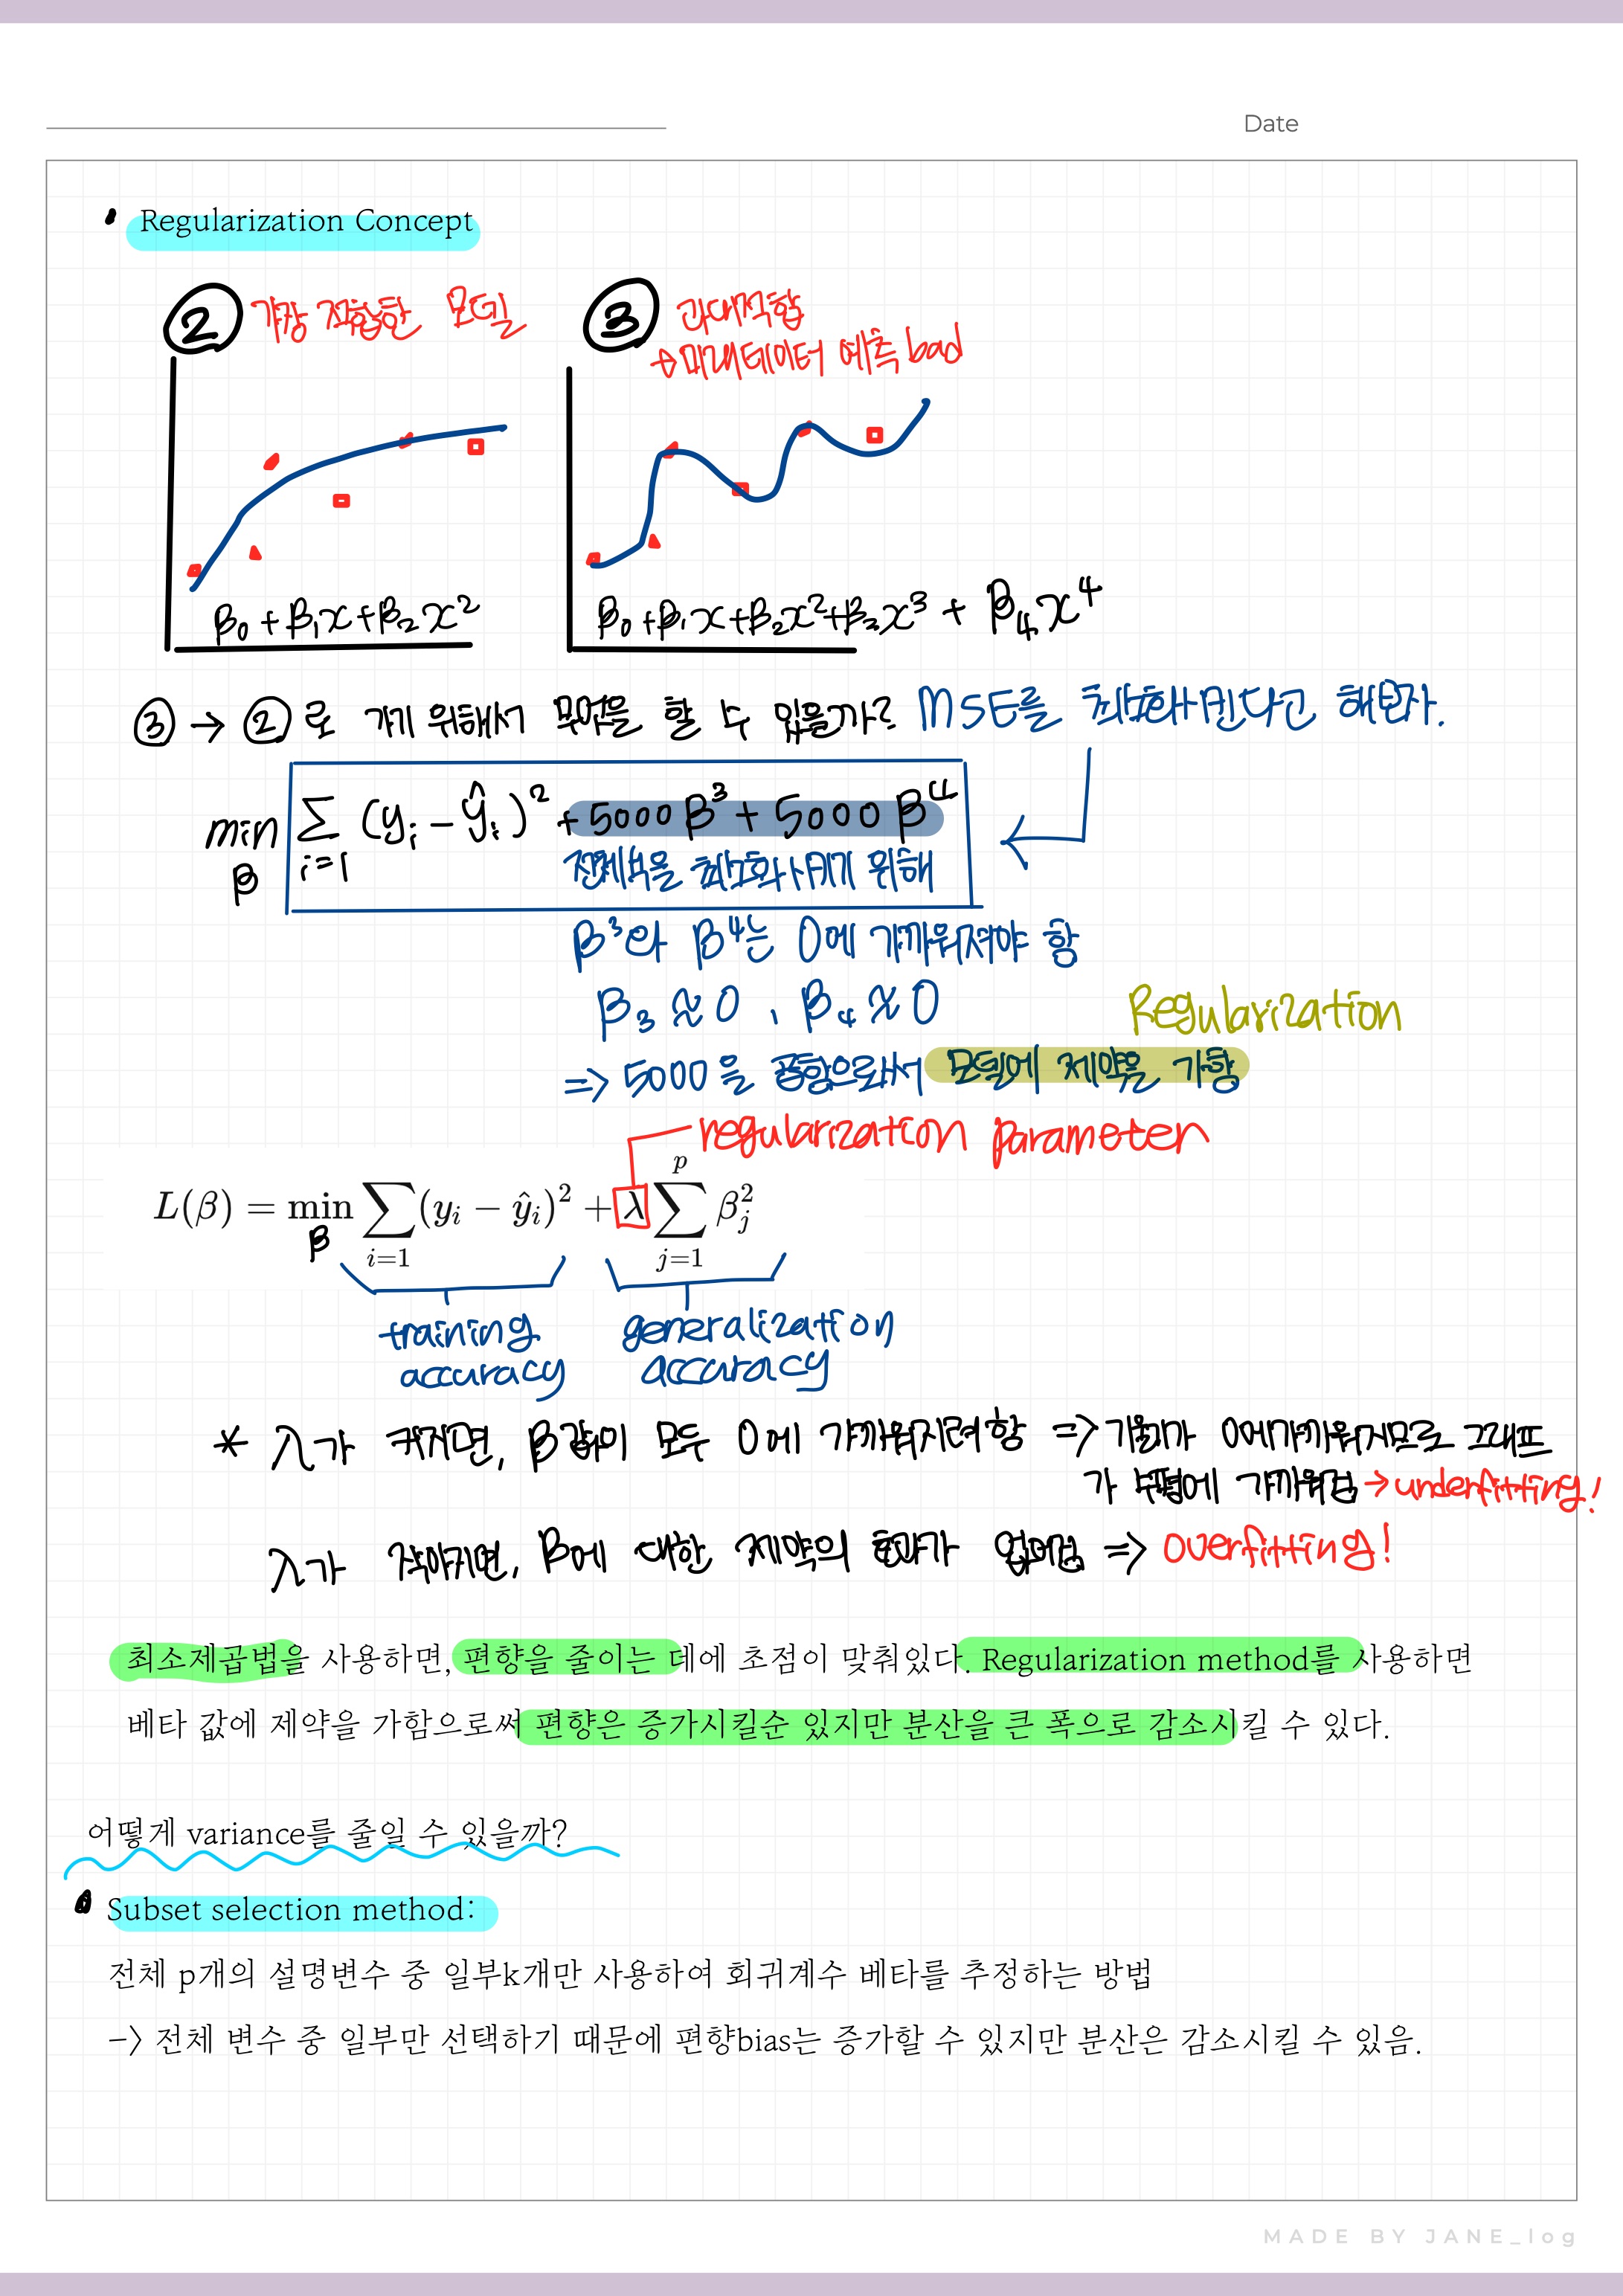 Date
• Regularization Concept
② 가장 적합한 모델
③ 과대적합
→ 미래데이터 예측 bad
β₀ + β₁x + β₂x²
β₀ + β₁x + β₂x² + β₃x³ + β₄x⁴
③ → ② 로 가기 위해서 무엇을 할 수 있을까? MSE를 최소화시킨다고 해보자.
min β Σ i=1 (yᵢ - ŷᵢ)² + 5000β³ + 5000β⁴
전체식을 최소화시키기 위해
β³와 β⁴는 0에 가까워져야 함
β₃ ≈ 0 , β₄ ≈ 0
Regularization
⇒ 5000을 곱함으로써 모델에 제약을 가함
regularization parameter
L(β) = min β Σ i=1 (yᵢ − ŷᵢ)² + λ Σ j=1 p βⱼ²
training accuracy
generalization accuracy
* λ가 커지면, β값이 모두 0에 가까워지려함 ⇒ 기울기가 0에 가까워지므로 그래프
가 수평에 가까워짐 → underfitting!
λ가 작아지면, β에 대한 제약의 효과가 없어짐 ⇒ overfitting!
최소제곱법을 사용하면, 편향을 줄이는 데에 초점이 맞춰있다. Regularization method를 사용하면
베타 값에 제약을 가함으로써 편향은 증가시킬순 있지만 분산을 큰 폭으로 감소시킬 수 있다.
어떻게 variance를 줄일 수 있을까?
• Subset selection method:
전체 p개의 설명변수 중 일부k개만 사용하여 회귀계수 베타를 추정하는 방법
-> 전체 변수 중 일부만 선택하기 때문에 편향bias는 증가할 수 있지만 분산은 감소시킬 수 있음.
MADE BY JANE_log